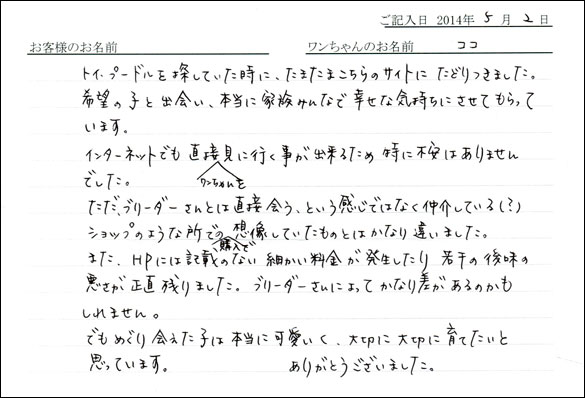 ご記入日 2014年 5月 2日
お客様のお名前 ワンちゃんのお名前 ココ
トイ・プードルを探していた時に、たまたまこちらのサイトにたどりつきました。
希望の子と出会い、本当に家族みんなで幸せな気持ちにさせてもらって
います。
インターネットでも直接見に行く事が出来るため特に不安はありません
でした。 ワンちゃんを
ただ、ブリーダーさんとは直接会う、という感じではなく仲介している(?)
ショップのような所での想像していたものとはかなり違いました。
購入で
また、HPには記載のない細かい料金が発生したり若干の後味の
悪さが正直残りました。ブリーダーさんによってかなり差があるのかも
しれません。
でもめぐり会えた子は本当に可愛いく、大切に大切に育てたいと
思っています。 ありがとうございました。